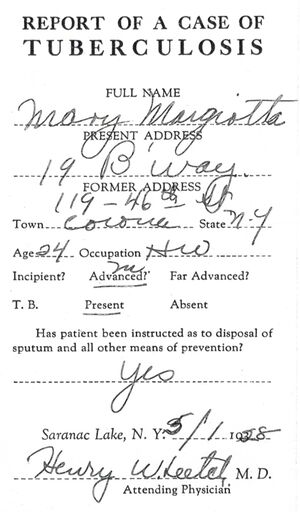 REPORT OF A CASE OF
TUBERCULOSIS
FULL NAME
Mary Margiotta
PRESENT ADDRESS
19 B'way.
FORMER ADDRESS
119-46th St
Town Corona State NY
Age 24 Occupation HW
Incipient? Advanced? Far Advanced?
T. B. Present Absent
Has patient been instructed as to disposal of
sputum and all other means of prevention?
Yes
Saranac Lake, N. Y. 5/1 1928
Henry W. Leetch M. D.
Attending Physician